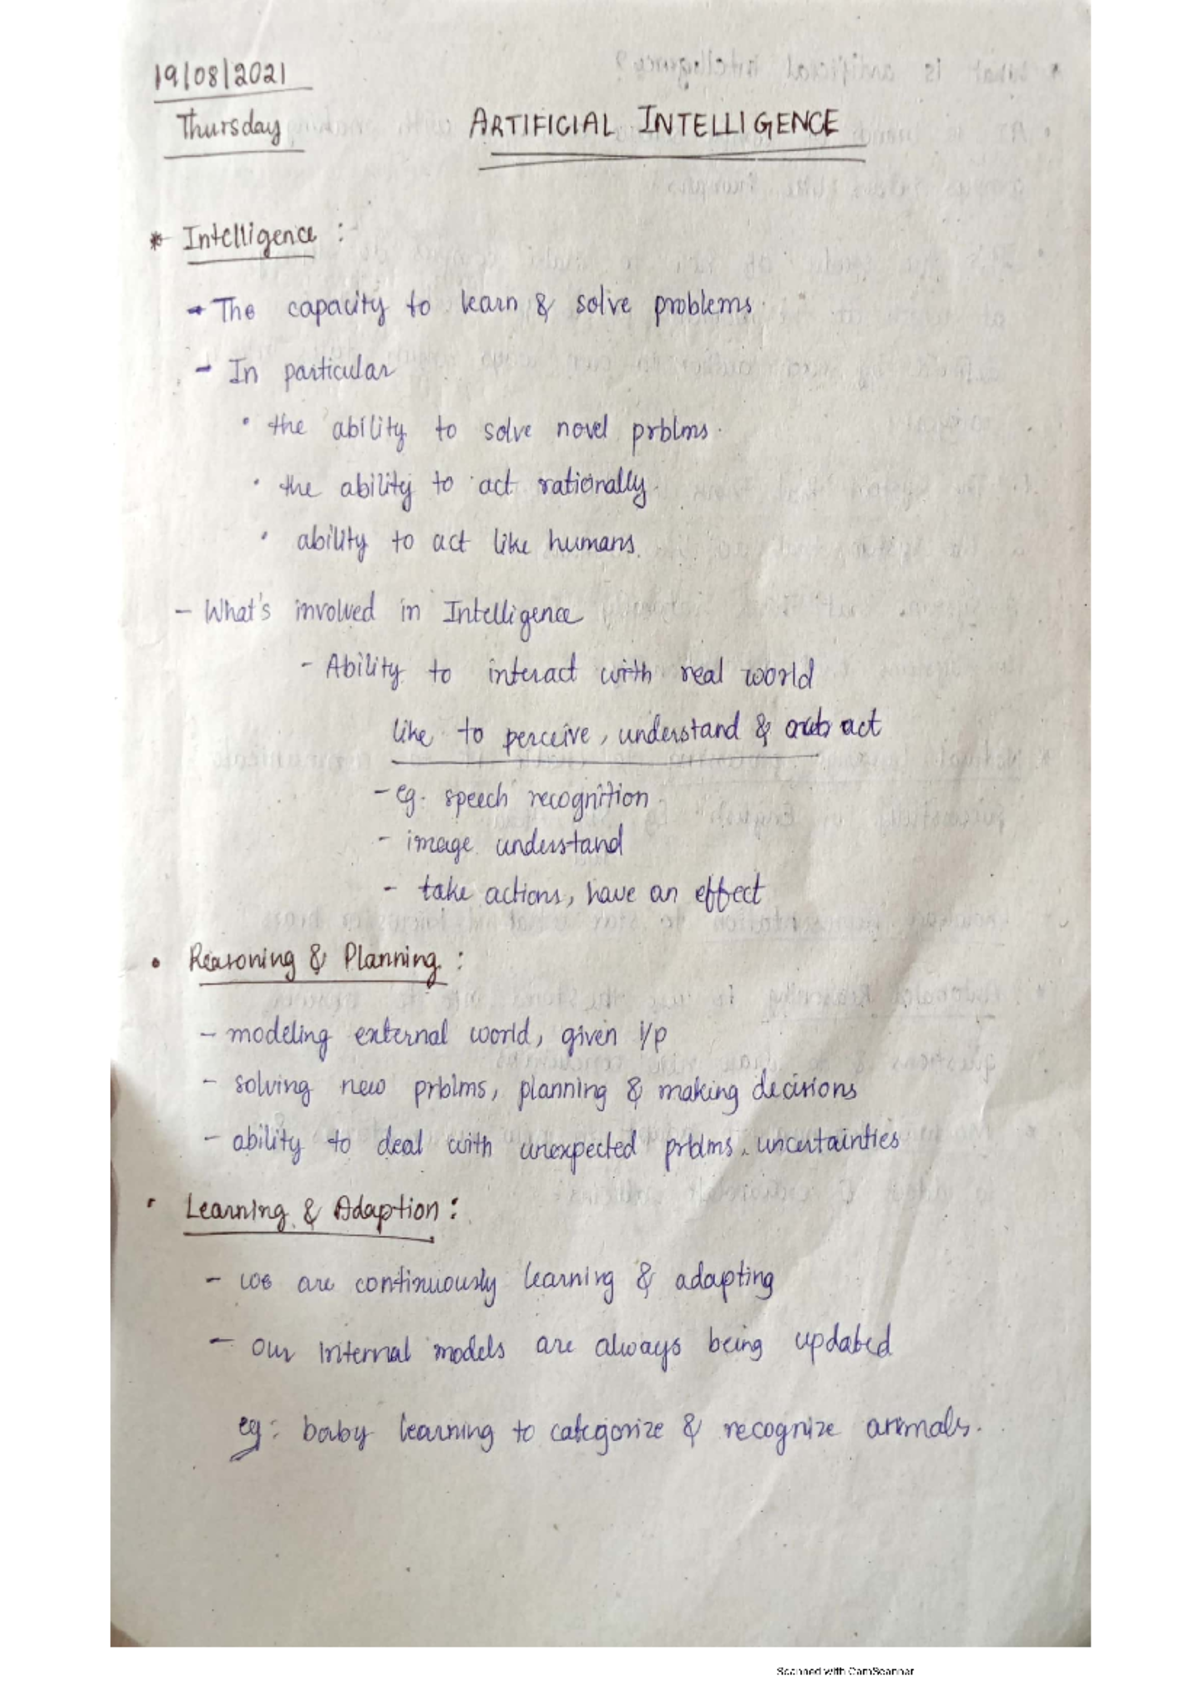 19/08/2021
Thursday
ARTIFICIAL INTELLIGENCE
* Intelligence :
- The capacity to learn & solve problems.
- In particular
• the ability to solve novel prblms.
• the ability to act rationally.
• ability to act like humans.
- What's involved in Intelligence
- Ability to interact with real world
like to perceive, understand & act
- eg. speech recognition
- image understand
- take actions, have an effect
• Reasoning & Planning :
- modeling external world, given i/p
- solving new prblms, planning & making decisions
- ability to deal with unexpected prblms, uncertainties
• Learning & Adaption :
- we are continuously learning & adapting
- our internal models are always being updated
eg: baby learning to categorize & recognize animals.
Scanned with CamScanner